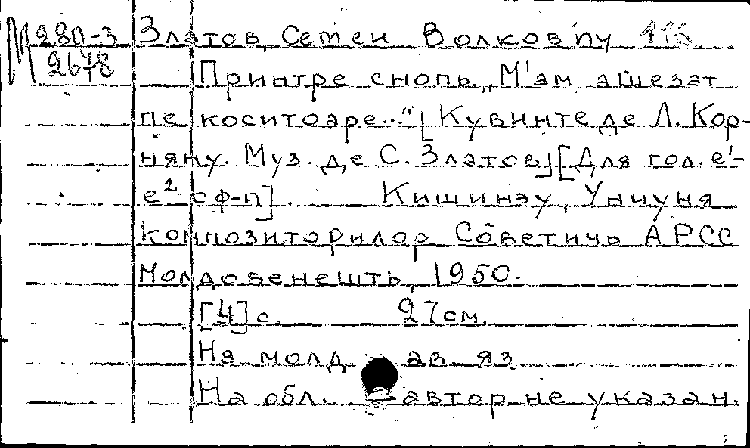 М 280-3 Златов, Семен Волкович
2678 Принтре снопь „М'ам ашезат
пе коситоаре.." [Кувинте де Л. Кор-
няну. Муз. де С. Златов] [Для гол. e¹-
e² с ф-п]. Кишинэу, Униуня
композиторилор Советичь АРСС
Молдовенешть, 1950.
[4] с. 27 см.
На молдав. яз.
На обл. автор не указан.